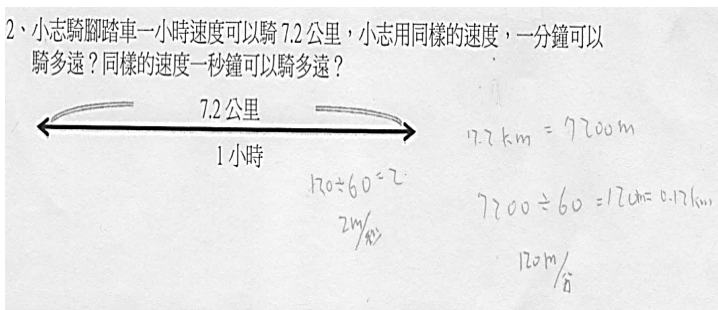 2、小志騎腳踏車一小時速度可以騎 7.2 公里，小志用同樣的速度，一分鐘可以
騎多遠？同樣的速度一秒鐘可以騎多遠？
7.2 公里
1 小時
7.2 km = 7200m
120÷60=2
2m/秒
7200÷60=120m=0.12km
120m/分